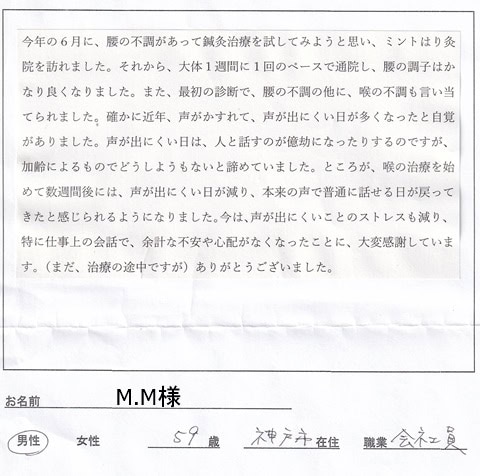 今年の６月に、腰の不調があって鍼灸治療を試してみようと思い、ミントはり灸
院を訪れました。それから、大体１週間に１回のペースで通院し、腰の調子はか
なり良くなりました。また、最初の診断で、腰の不調の他に、喉の不調も言い当
てられました。確かに近年、声がかすれて、声が出にくい日が多くなったと自覚
がありました。声が出にくい日は、人と話すのが億劫になったりするのですが、
加齢によるものでどうしようもないと諦めていました。ところが、喉の治療を始
めて数週間後には、声が出にくい日が減り、本来の声で普通に話せる日が戻って
きたと感じられるようになりました。今は、声が出にくいことのストレスも減り、
特に仕事上の会話で、余計な不安や心配がなくなったことに、大変感謝していま
す。（まだ、治療の途中ですが）ありがとうございました。
お名前 M.M様
男性 女性 59 歳 神戸市 在住 職業 会社員